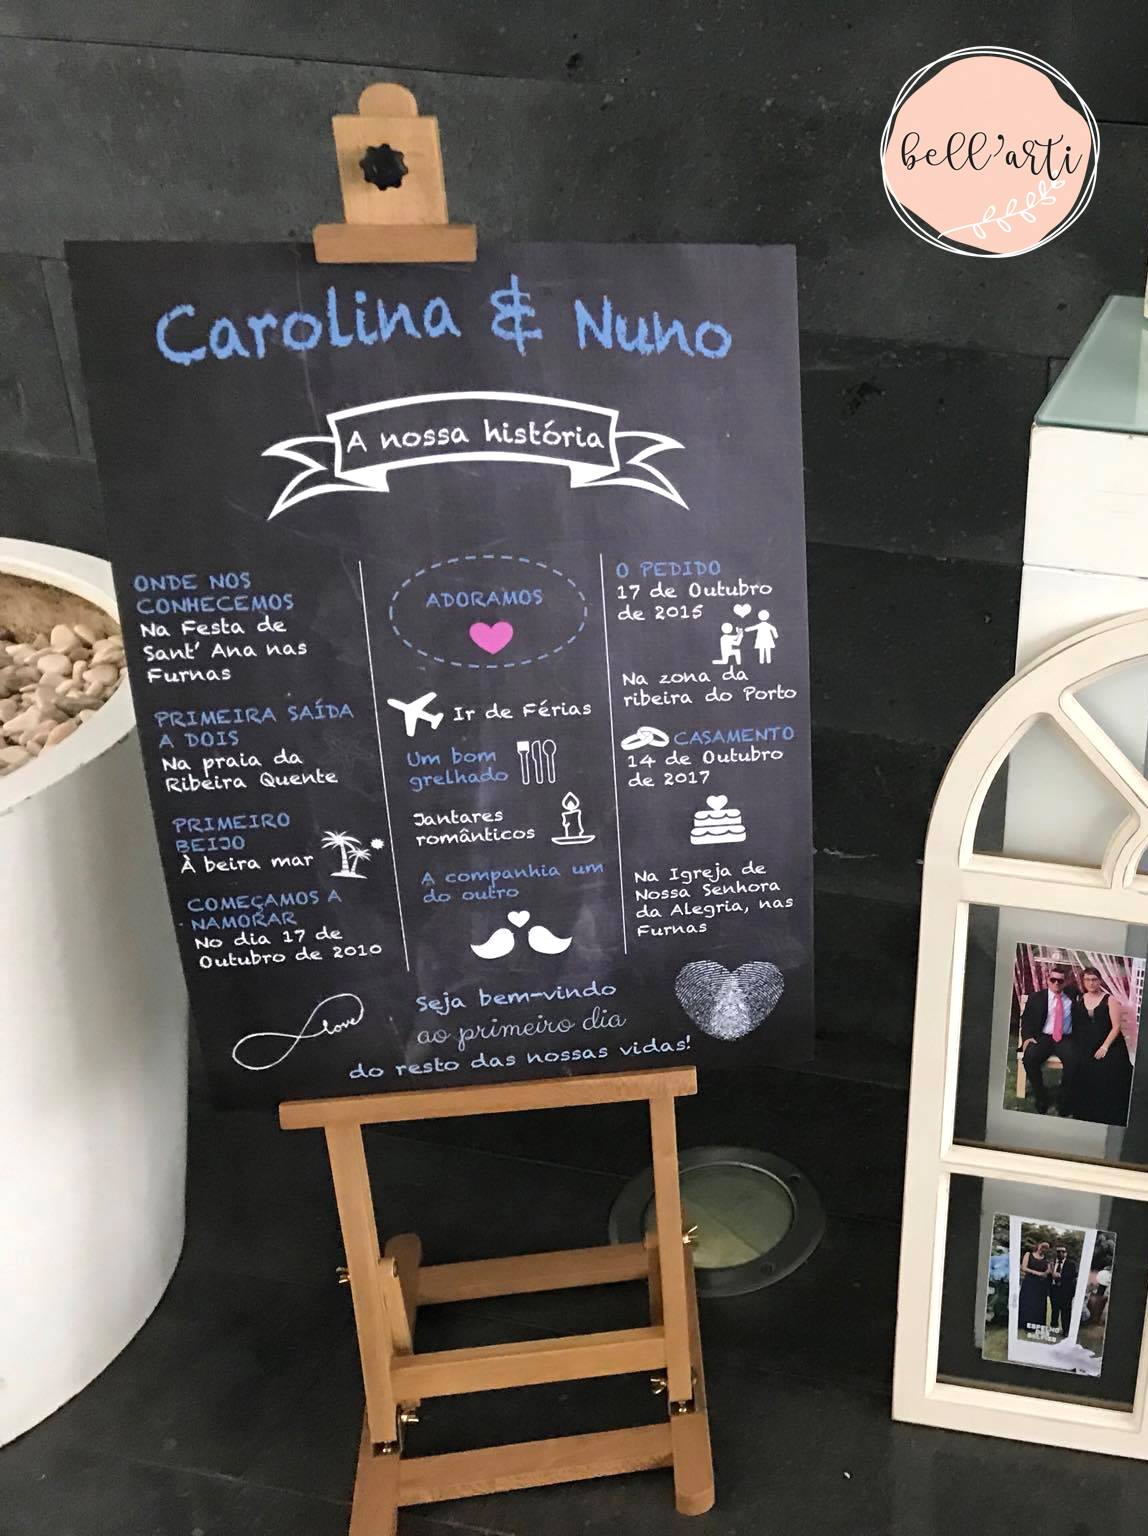 bell'arti
Carolina & Nuno
A nossa história
ONDE NOS
CONHECEMOS
Na Festa de
Sant' Ana nas
Furnas
PRIMEIRA SAÍDA
A DOIS
Na praia da
Ribeira Quente
PRIMEIRO
BEIJO
À beira mar
COMEÇAMOS A
NAMORAR
No dia 17 de
Outubro de 2010
ADORAMOS
Ir de Férias
Um bom
grelhado
Jantares
românticos
A companhia um
do outro
O PEDIDO
17 de Outubro
de 2015
Na zona da
ribeira do Porto
CASAMENTO
14 de Outubro
de 2017
Na Igreja de
Nossa Senhora
da Alegria, nas
Furnas
love
Seja bem-vindo
ao primeiro dia
do resto das nossas vidas!
ESPELHO